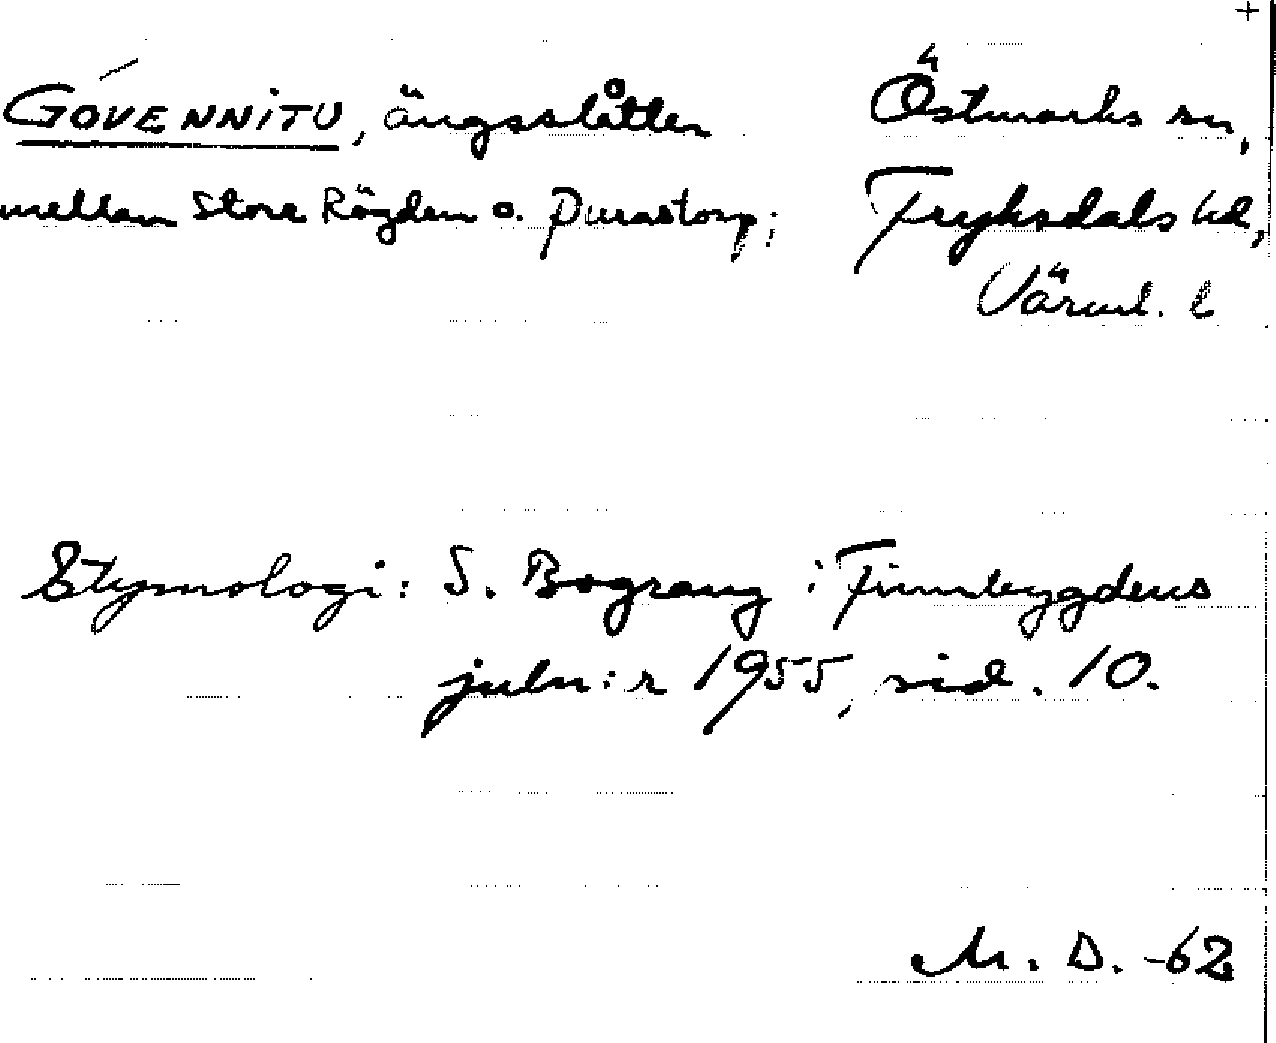 +
GÓVENNITU, ängsslåtten
mellan Store Rögden o. Purastorp;
Östmarks sn,
Fryksdals hd,
Värml. l
Etymologi: S. Bograng i Finnbygdens
juln:r 1955, sid. 10.
M. D. -62